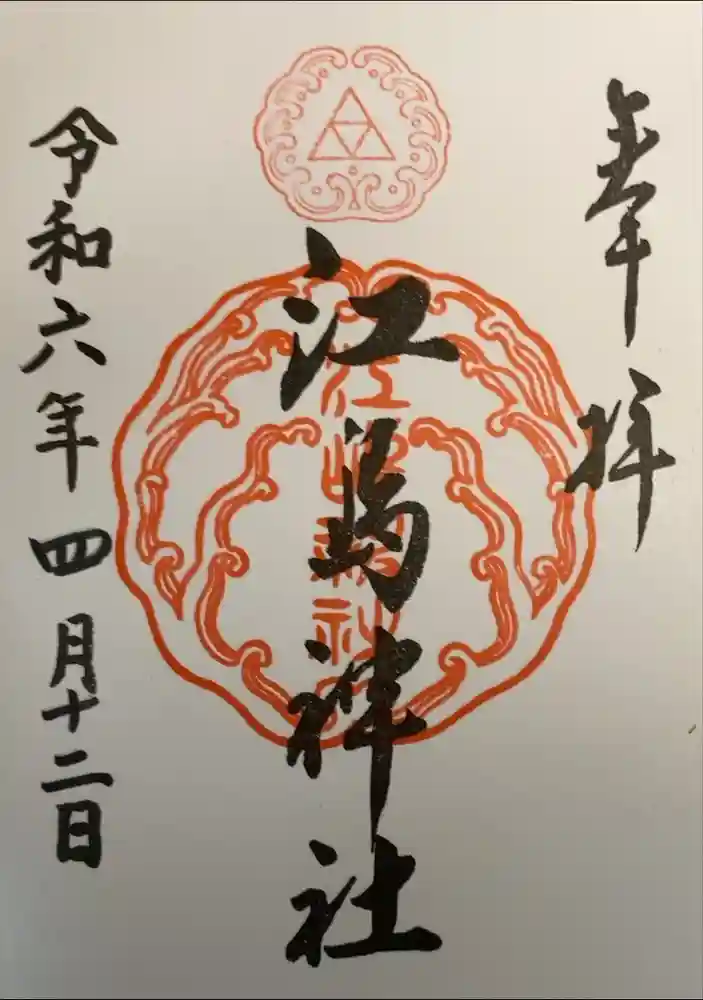 奉拝
江島神社
江島神社
令和六年四月十二日